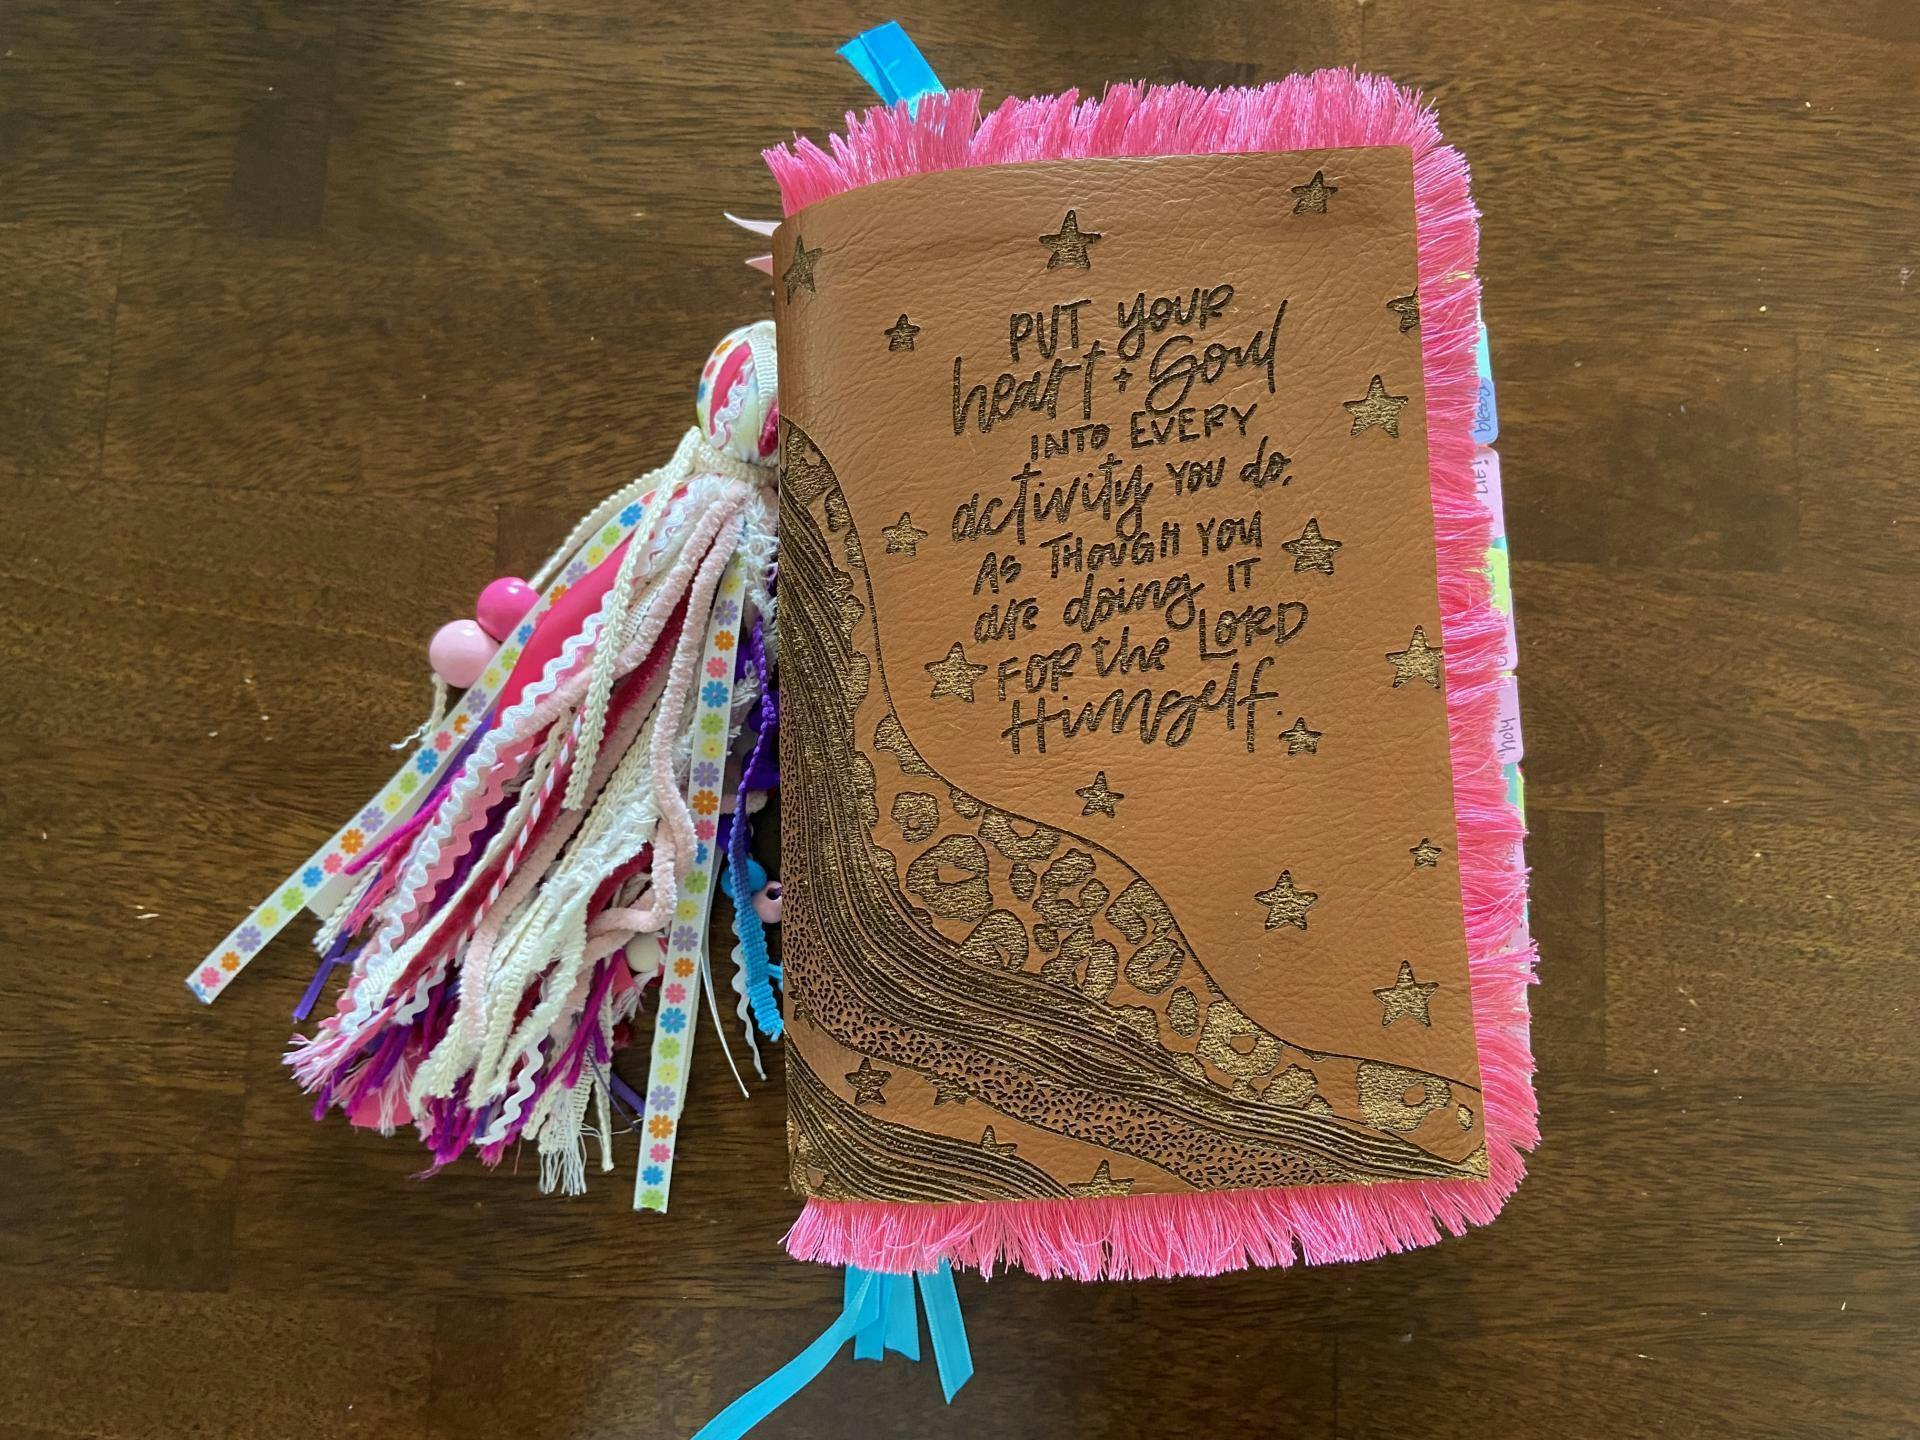 PUT YOUR
heart + Soul
INTO EVERY
activity YOU do,
AS THOUGH YOU
are doing IT
FOR the LORD
Himself.
bless
LIE!
holy